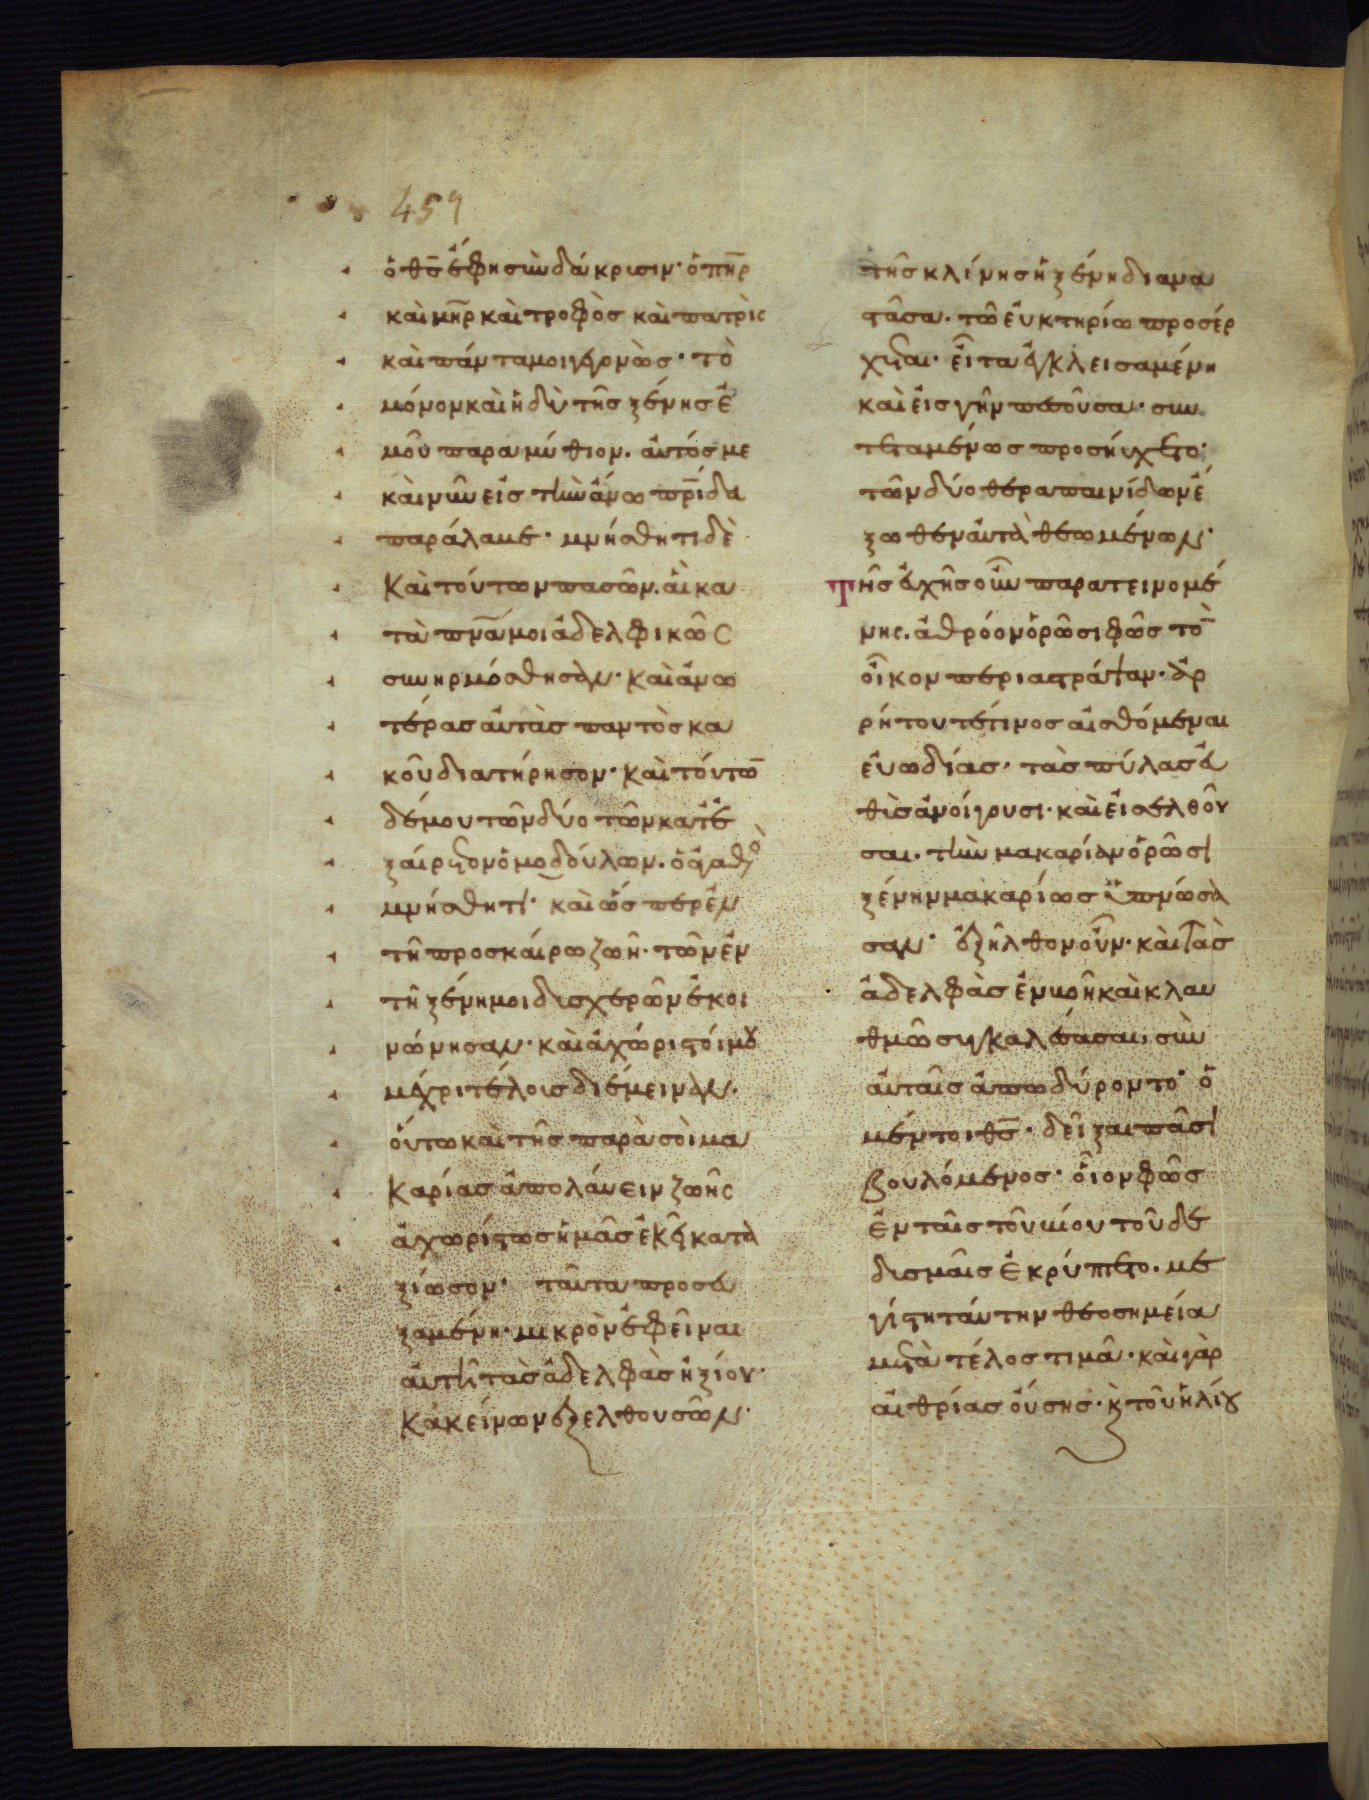 459
ὁ θ̅ς̅ ἔφη σὺν δάκρυσιν· ὁ π̅η̅ρ̅
καὶ μ̅η̅ρ̅ καὶ τροφὸς καὶ πατρὶς
καὶ πάντα μοι γεγονὼς· τὸ
μόνον καὶ ἡδὺ τῆς ξένης ἐ
μοῦ παραμύθιον. αὐτός με
καὶ νῦν εἰς τὴν ἄνω π̅ρ̅ίδα
παράλαβε· μνήσθητι δὲ
καὶ τούτων πασῶν. αἳ κα
τὰ π̅ν̅α̅ μοι ἀδελφικῶς
συνηρμόσθησαν· καὶ ἀνω
τέρας αὐτὰς παντὸς κα
κοῦ διατήρησον· καὶ τούτω̅
δέ μου τῶν δύο τῶν κατ' ἐ
ξαίρετον ὁμοδούλων. ὁ ἀγαθὸ
μνήσθητι· καὶ ὥσπερ ἐν
τῇ προσκαίρω ζωῇ· τῶν ἐν
τῇ ξένη μοι δυσχερῶν ἐκοι
νώνησαν· καὶ ἀχώριστοί μου
μέχρι τέλους διέμειναν.
οὕτω καὶ τῆς παρὰ σοὶ μα
καρίας ἀπολαύειν ζωῆς
ἀχωρίστως ἡμᾶς ἐκεῖ κατα
ξίωσον· ταῦτα προσευ
ξαμένη· μικρὸν ἐφεῖναι
αὐτῇ τὰς ἀδελφὰς ἠξίου·
κακείνων ἐξελθουσῶν·
τῆς κλίνης ἡ ξένη διανα
στᾶσα. τῶ εὐκτηρίω προσέρ
χεται· εἶτα ἐγκλεισαμένη
καὶ εἰς γῆν πεσοῦσα· συν
τεταμένως προσηύχετο·
τῶν δύο θεραπαινίδων ἔ
ξωθεν αὐτὰ θεωμένων·
Τῆς εὐχῆς οὖν παρατεινομέ
νης. ἀθρόον ὁρῶσι φῶς τὸ̅
οἶκον περιαστράψαν· ἀρ
ρήτου τέ τινος αἰσθόμεναι
εὐωδίας· τὰς πύλας εὐ
θὺς ἀνοίγουσι· καὶ εἰσελθοῦ
σαι. τὴν μακαρίαν ὁρῶσι
ξένην μακαρίως ὑπνώσα
σαν· ἐξῆλθον οὖν· καὶ τὰς
ἀδελφὰς ἐν μονῇ καὶ κλαυ
θμῶ συγκαλέσασαι, σὺν
αὐταῖς ἀπωδύροντο· ὁ
μέντοι θ̅ς̅· δεῖξαι πᾶσι
βουλόμενος· οἷον φῶς
ἐν ταῖς τοῦ βίου τοῦδε
δυσμαῖς ἐκρύπτετο. με
γίστη ταύτην θεοσημεία
μετὰ τέλος τιμᾶ· καὶ γὰρ
αἰθρίας οὔσης· κ̀ τοῦ ἡλίου